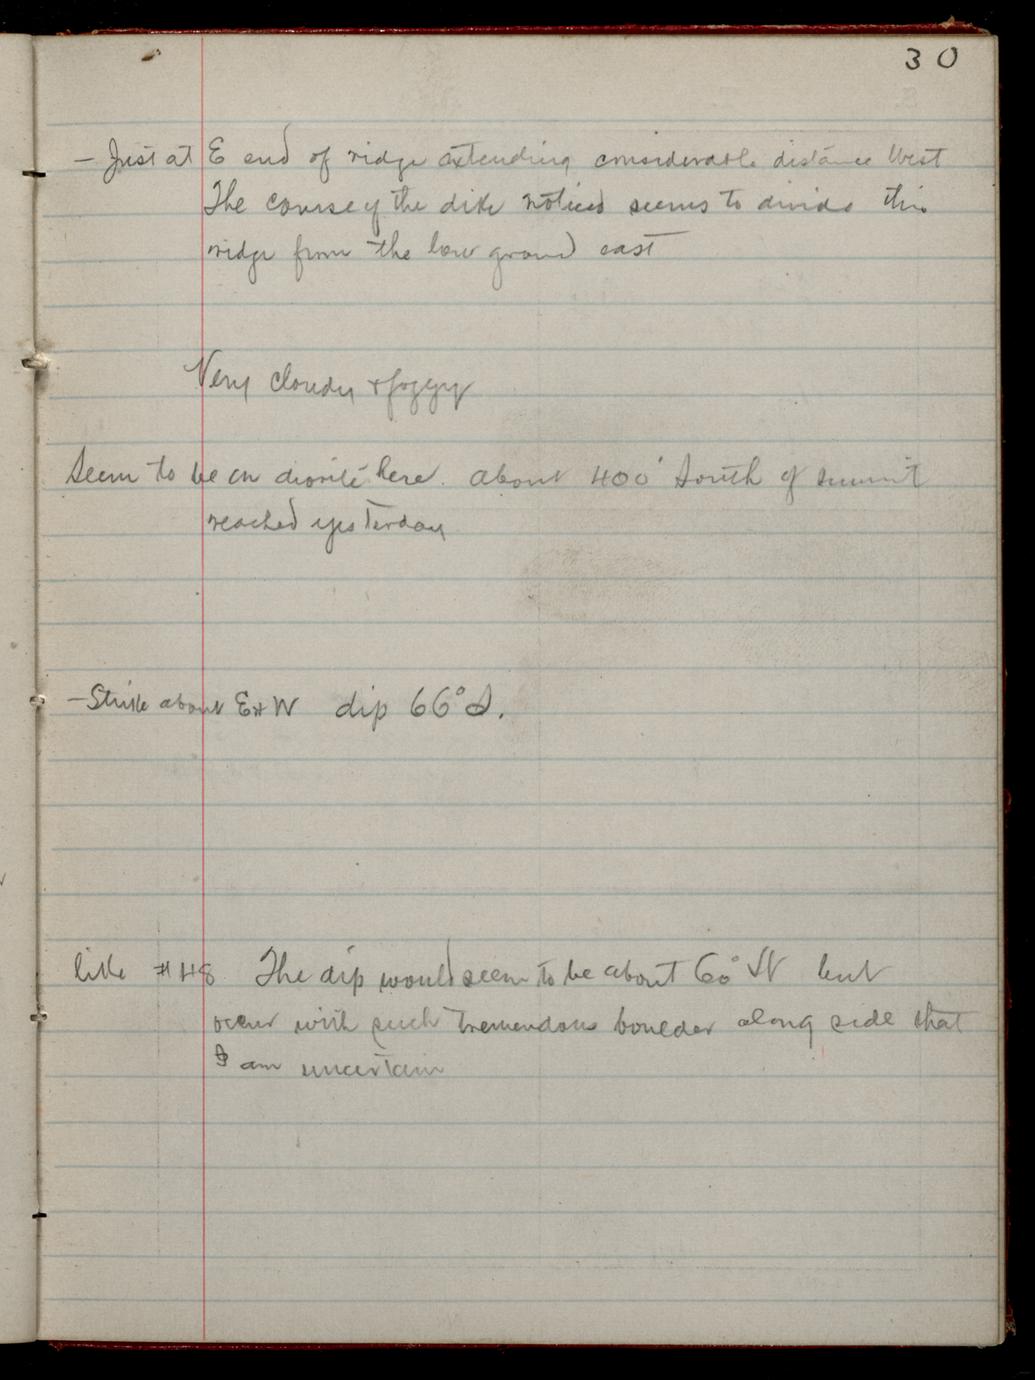 30
— Just at E end of ridge extending considerable distance West
The course of the dike noticed seems to divide this
ridge from the low ground east
Very cloudy & foggy
Seem to be on diorite here. About 400' South of summit
reached yesterday
— Strike about E & W dip 66° S.
like #48 The dip would seem to be about 60° W but
occur with such tremendous boulder along side that
I am uncertain